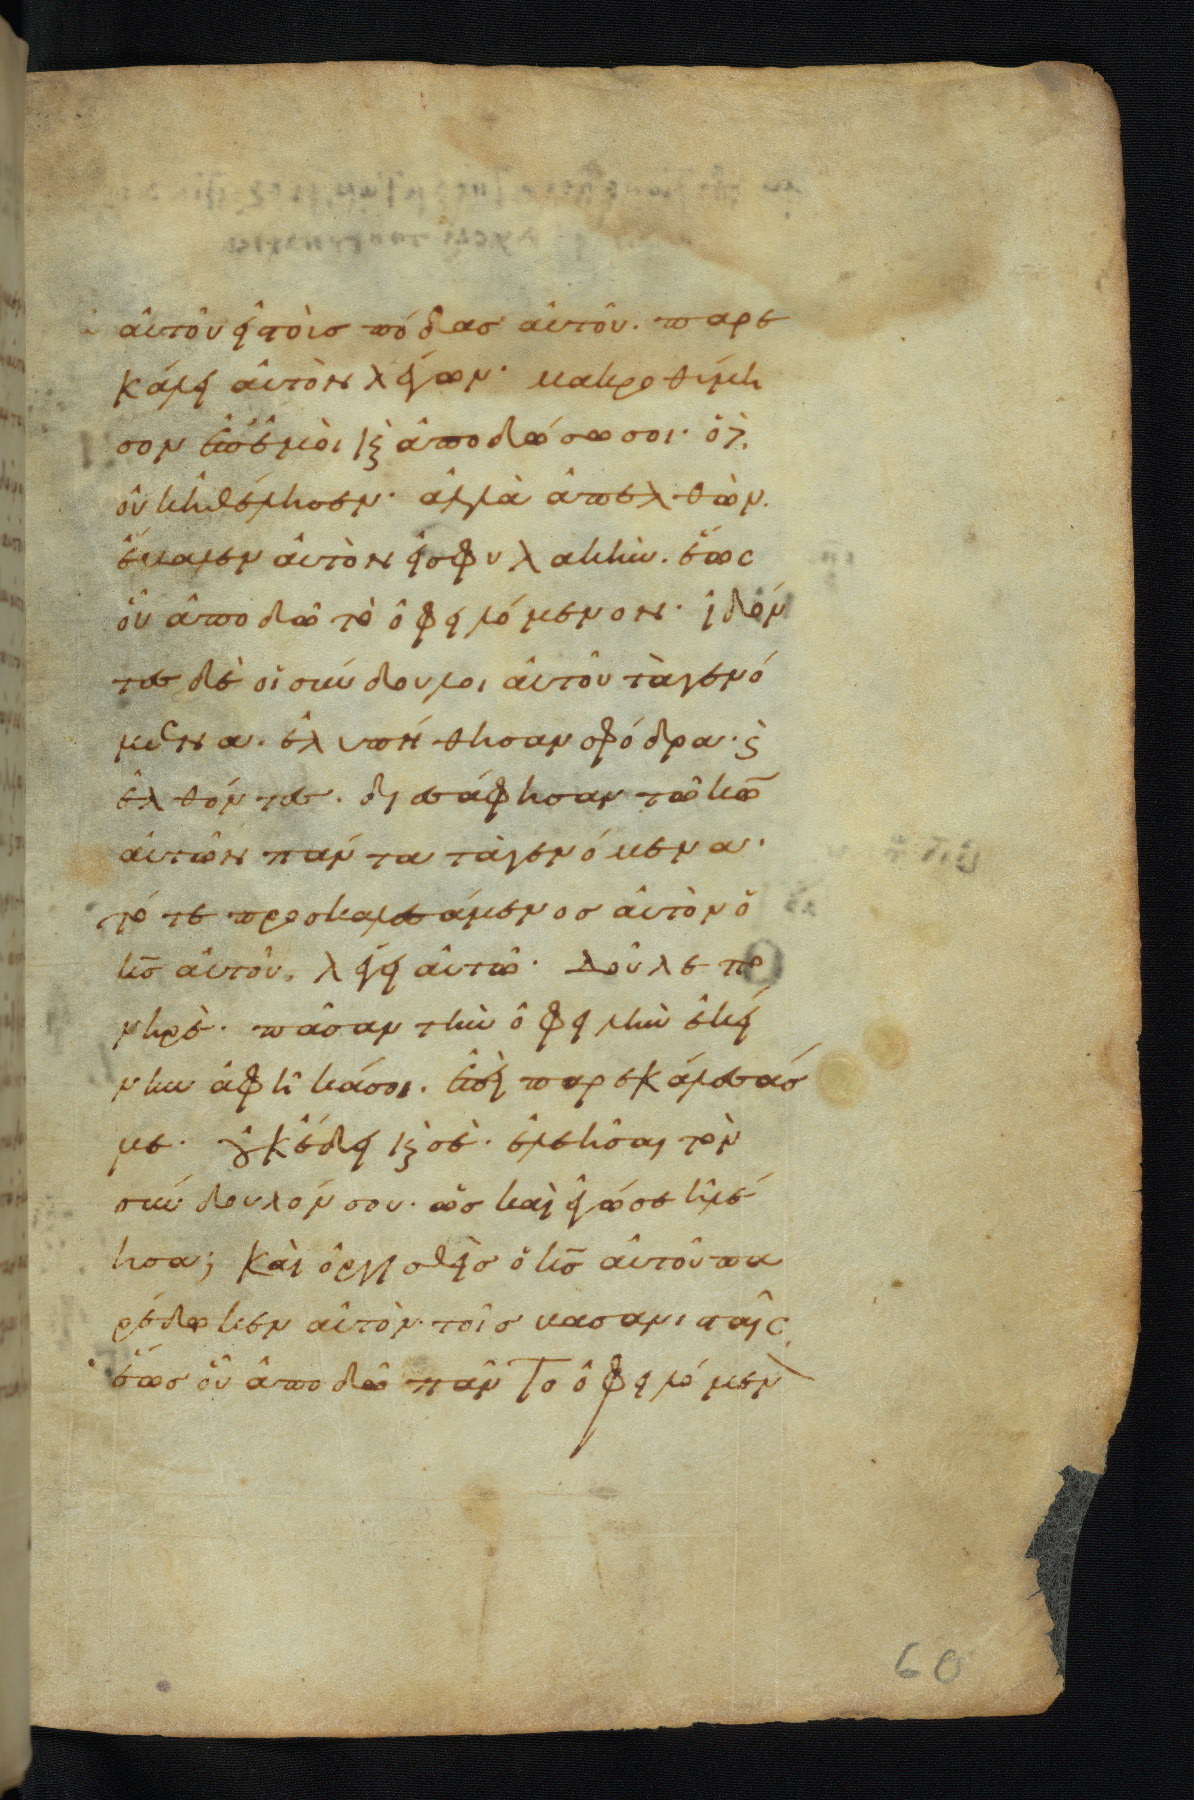 αὐτοῦ εἰς τοὺς πόδας αὐτοῦ. παρε
κάλει αὐτὸν λέγων· μακροθύμη
σον ἐπ' ἐμοὶ κ(αὶ) ἀποδώσω σοι· ὁ δὲ
οὐκ ἠθέλησεν· ἀλλὰ ἀπελθὼν.
ἔβαλεν αὐτὸν εἰς φυλακὴν. ἕως
οὗ ἀποδῶ τὸ ὀφειλόμενον· ἰδόν
τες δὲ οἱ σύνδουλοι αὐτοῦ τὰ γενό
μενα. ἐλυπήθησαν σφόδρα· κ(αὶ)
ἐλθόντες. διεσάφησαν τῶ κω
αὐτῶν πάντα τὰ γενόμενα·
τότε προσκαλεσάμενος αὐτὸν ὁ
κς αὐτοῦ. λέγει αὐτῶ· Δοῦλε πο
νηρὲ· πᾶσαν τὴν ὀφειλὴν ἐκεί
νην ἀφῆκά σοι. ἐπεὶ παρεκάλεσάς
με· οὐκ ἔδει κ(αὶ) σὲ· ἐλεῆσαι τὸν
σύνδουλόν σου· ὡς καὶ ἐγώ σε ἠλέ
ησα; Καὶ ὀργισθεὶς ὁ κς αὐτοῦ πα
ρέδωκεν αὐτὸν τοῖς βασανισταῖς
ἕως οὗ ἀποδῶ πᾶν τὸ ὀφειλόμεν
60